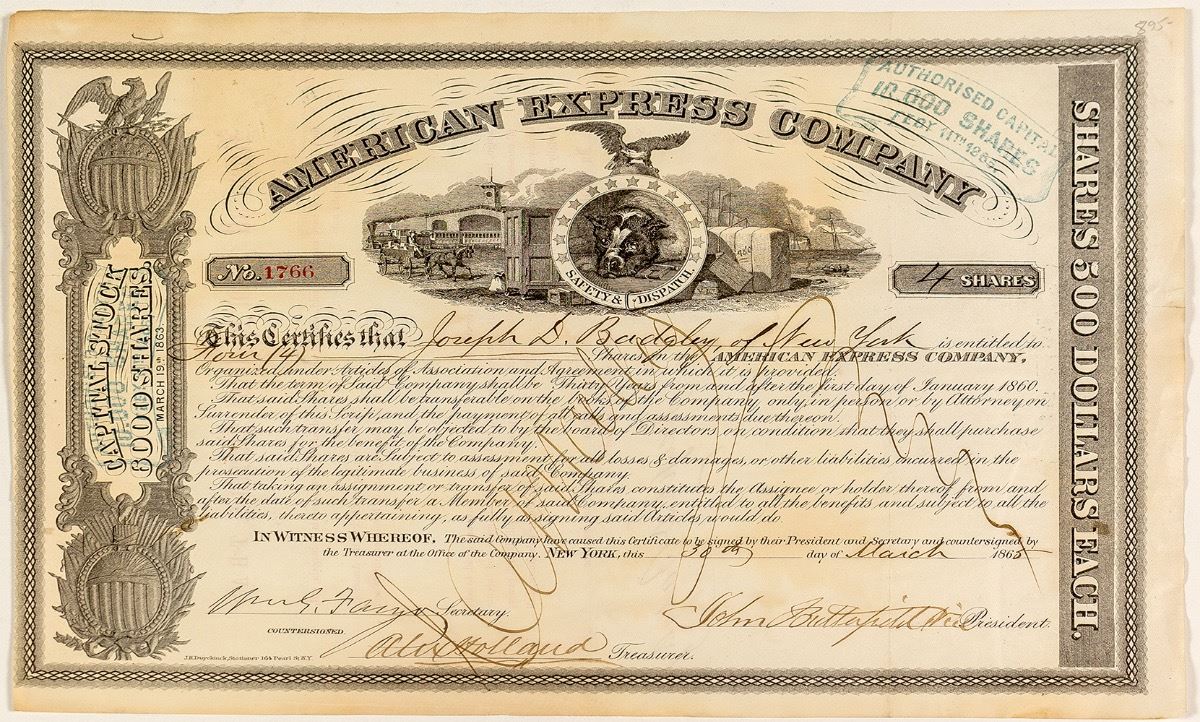 895-
AUTHORISED CAPITAL
10.000 SHARES
FEBY 11TH 1865
AMERICAN EXPRESS COMPANY
SAFETY & DISPATCH.
No. 1766
4 SHARES
This Certifies that Joseph D. Badgley of New York is entitled to
Four (4) Shares in the AMERICAN EXPRESS COMPANY,
Organized under Articles of Association and Agreement in which it is provided.
That the term of said Company shall be Thirty Years from and after the first day of January 1860.
That said Shares shall be transferable on the books of the Company, only, in person or by Attorney on
Surrender of this Scrip, and the payment of all calls and assessments due thereon.
That such transfer may be objected to by the board of Directors on condition that they shall purchase
said Shares for the benefit of the Company.
That said Shares are Subject to assessment for all losses & damages, or other liabilities incurred in the
prosecution of the legitimate business of said Company.
That taking an assignment or transfer of said Shares constitutes the Assignee or holder thereof from and
after the date of such transfer a Member of said Company, entitled to all the benefits and subject to all the
liabilities, thereto appertaining, as fully as signing said Articles would do.
IN WITNESS WHEREOF. The said Company have caused this Certificate to be signed by their President and Secretary and countersigned by
the Treasurer at the Office of the Company. NEW YORK, this 30th day of March 1865
Wm G. Fargo Secretary.
John Butterfield Vice President.
COUNTERSIGNED.
Alex Holland Treasurer.
J.E. Duyckinck, Stationer 164 Pearl St. N.Y.
CAPITAL STOCK
8000 SHARES
MARCH 19TH 1863
SHARES 500 DOLLARS EACH.